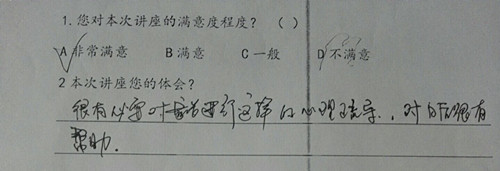 1.您对本次讲座的满意度程度?()
A 非常满意 B 满意 C 一般 D 不满意
2 本次讲座您的体会?
很有必要 进行这样的心理疏导,对自己很有
帮助.